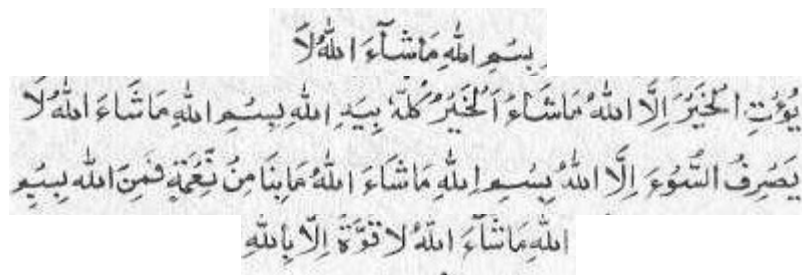 بِسْمِ اللهِ مَا شَآءَ اللهُ لَا
يُؤْتِ الْخَيْرَ اِلَّا اللهُ مَاشَآءَ اَلْخَيْرُ كُلُّهٗ بِيَدِ اللهِ بِسْمِ اللهِ مَاشَاءَ اللهُ لَا
يَصْرِفُ السُّوْءَ اِلَّا اللهُ بِسْمِ اللهِ مَاشَاءَ اللهُ مَابِنَا مِنْ نِّعْمَةٍ فَمِنَ الله بِسْمِ
اللهِ مَاشَآءَ اللهُ لَا قُوَّةَ اِلَّا بِاللهِ